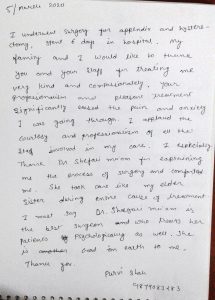 5/March 2020
I underwent surgery for appendix and hystere-
ctomy, spent 6 days in hospital. My
family and I would like to thank
you and your staff for treating me
very kind and compassionately. Your
professionalism and pleasant treatment
significantly eased the pain and anxiety
I was going through. I applaud the
courtesy and professionalism of all the
staff involved in my care. I especially
Thank Dr Shefali ma'am for explaining
me the process of surgery and comforted
me. She took care like my elder
sister during entire course of treatment
I must say Dr. Shefali ma'am is
the best surgeon and who knows her
patients Psychologically as well. She
is another God on earth to me.
Thank you.
Purvi Shah